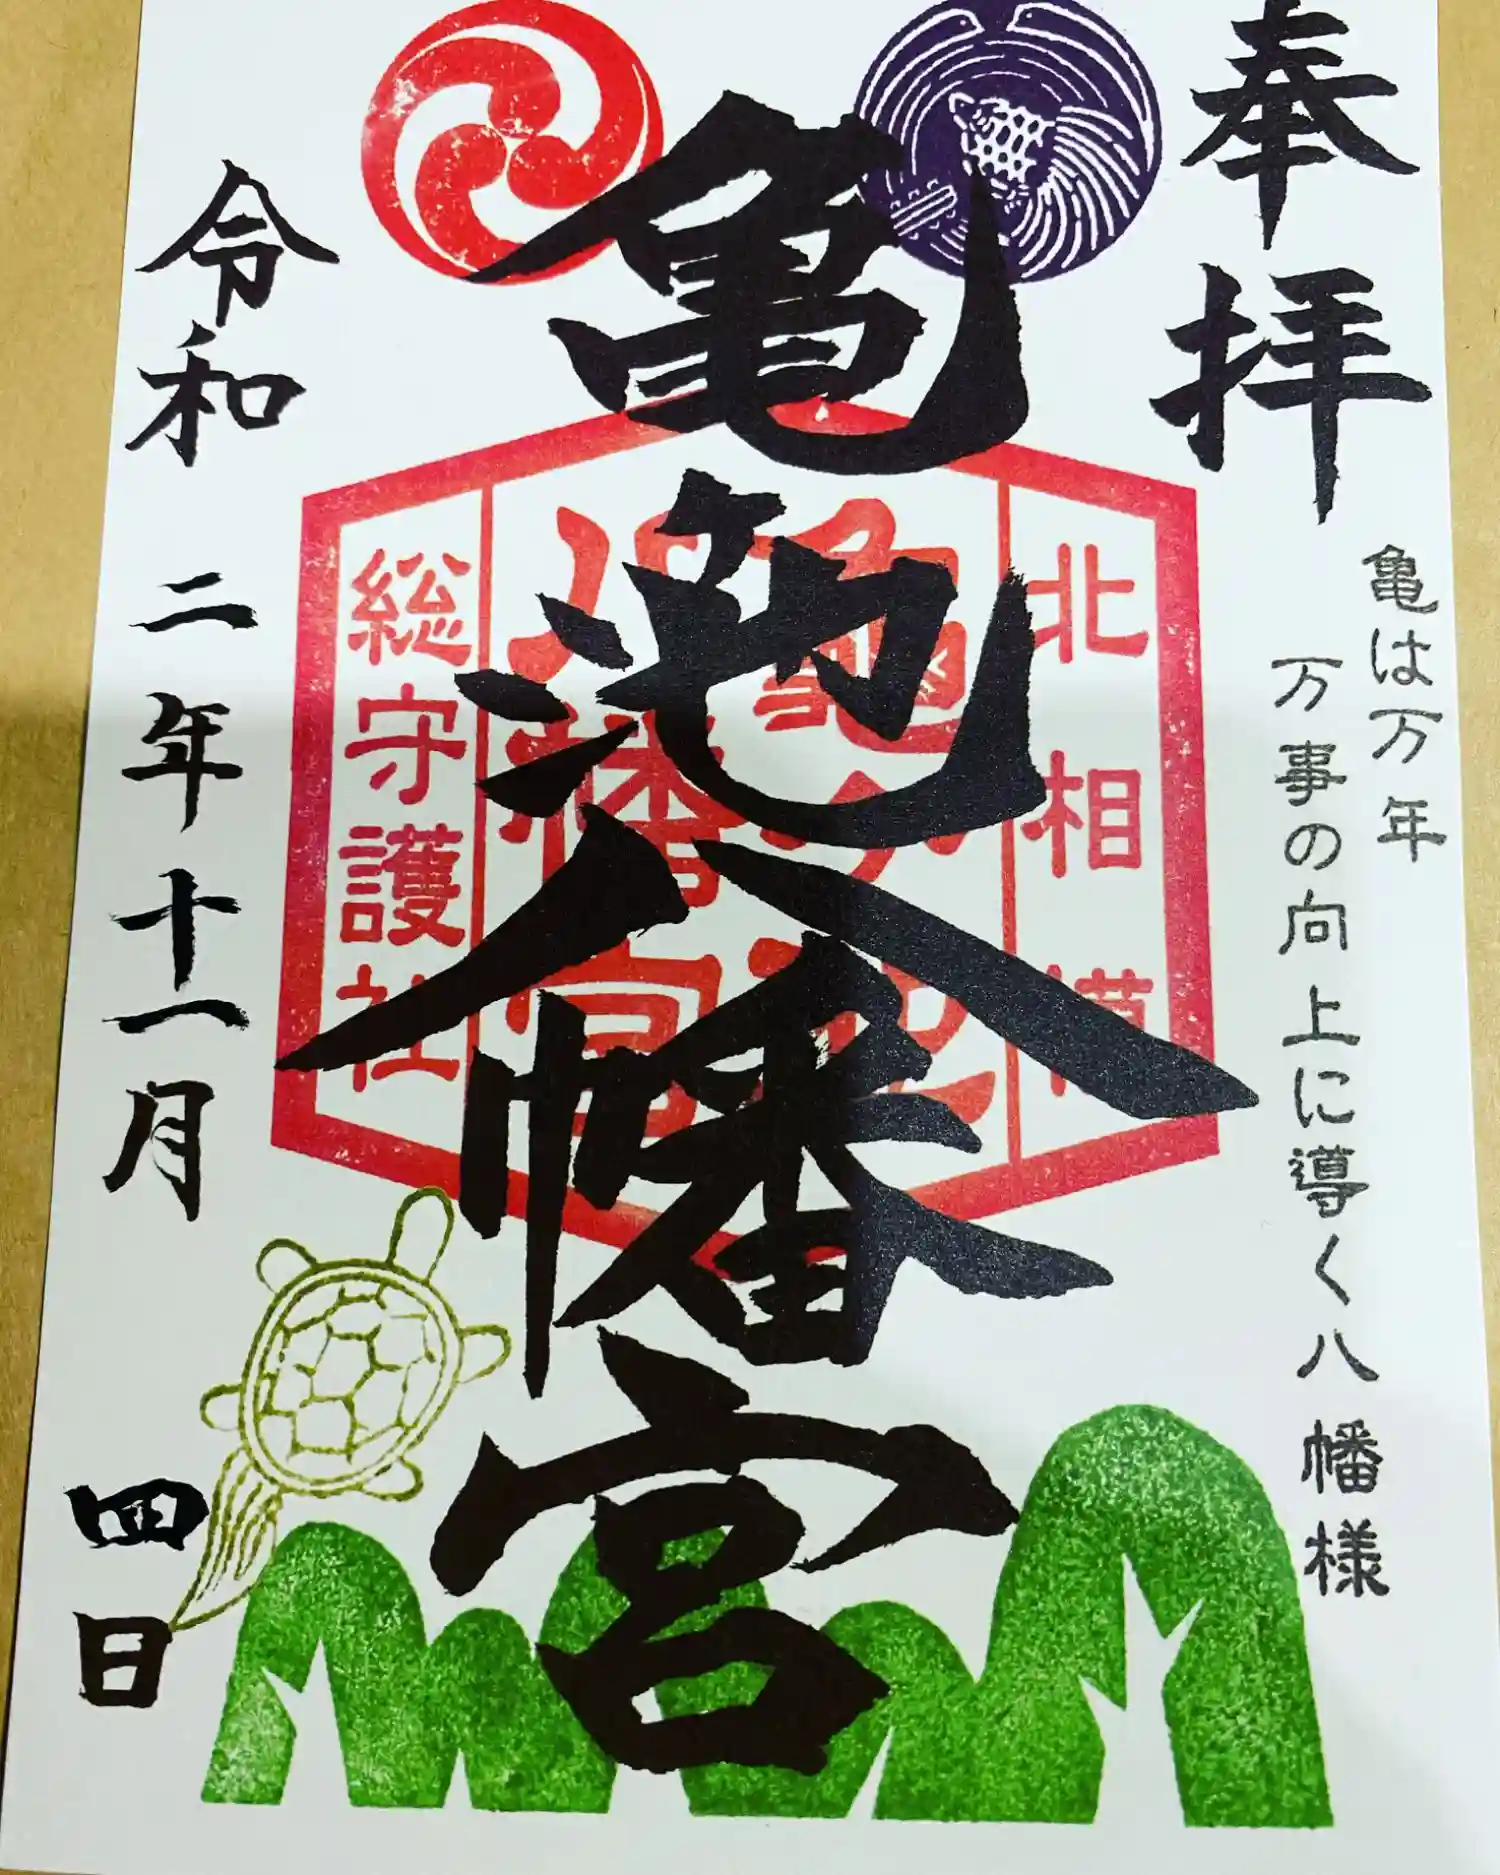 奉拝
亀は万年
万事の向上に導く八幡様
亀池八幡宮
北相模
亀ヶ池
八幡宮
総守護社
令和二年十一月四日